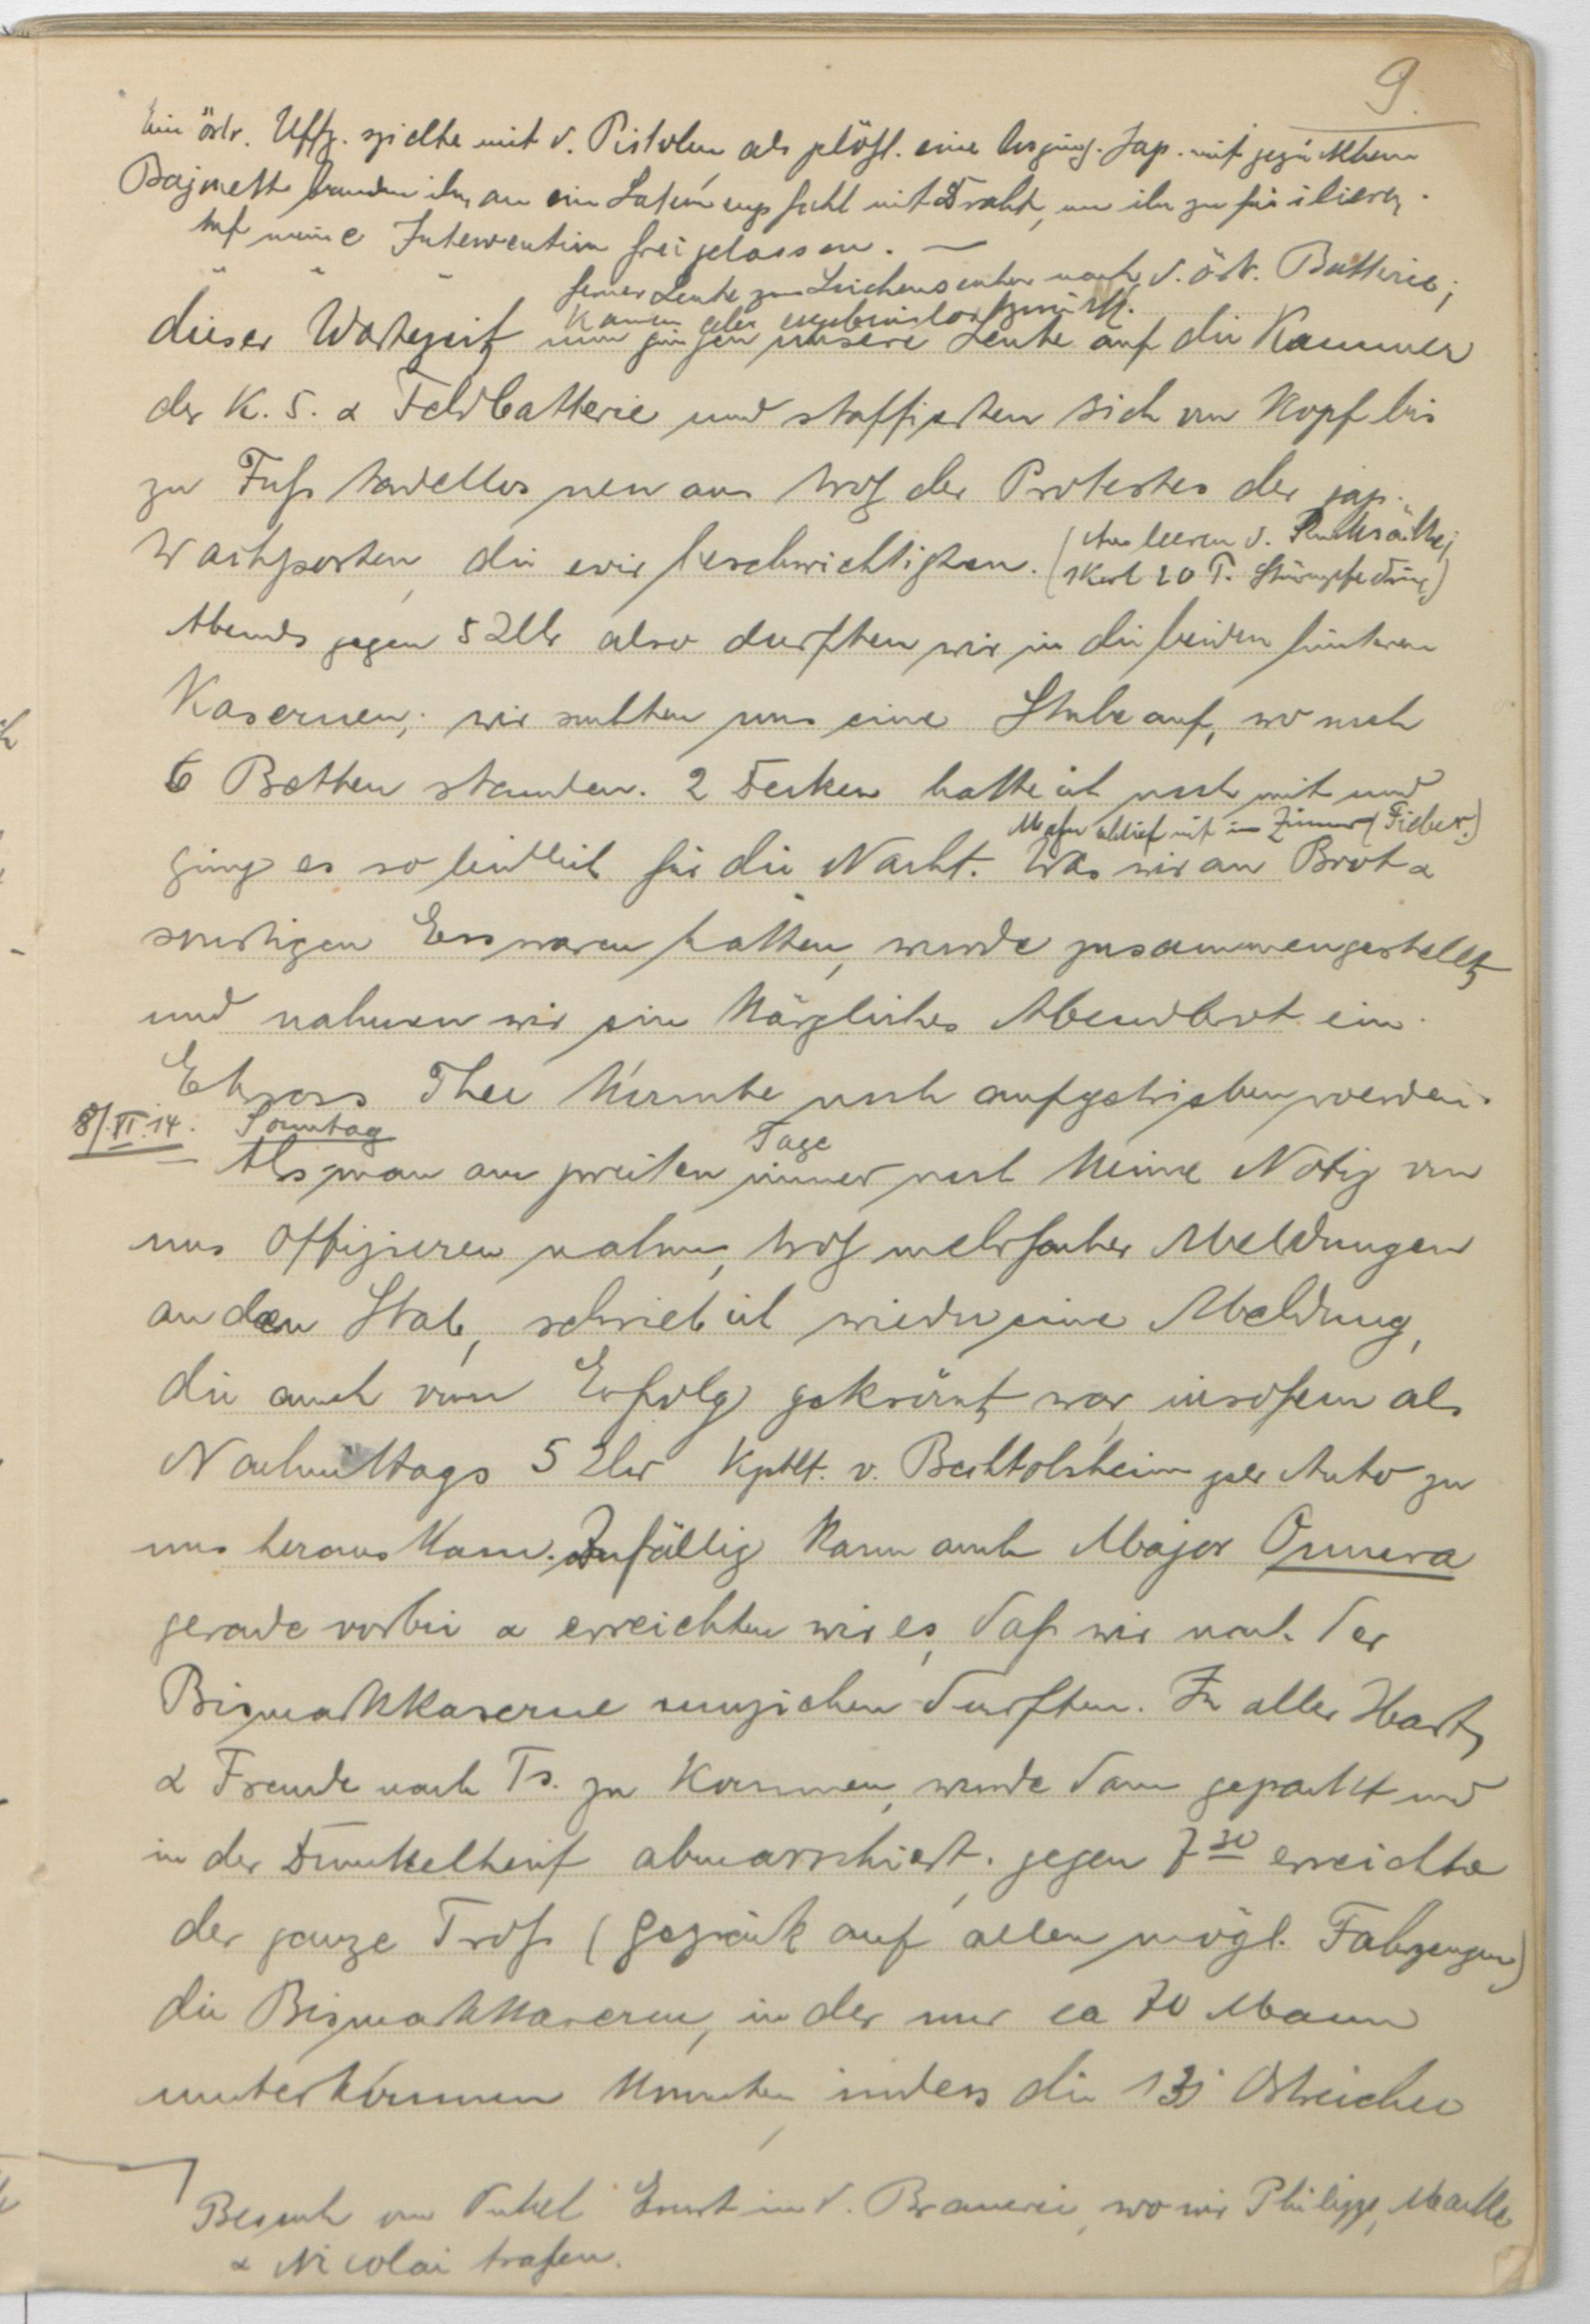 9.
Ein östr. Uffz. spielte mit d. Pistolen als plötzl. eine losging. Jap. mit gezücktem
Bajonett banden ihn an ein Laternenpfahl mit Draht, um ihn zu füsilieren.
Auf meine Intervention freigelassen. —
ferner Leute zum Leichensuchen nach d. östr. Batterie;
kamen aber ergebnislos zurück.
dieser Wartezeit nun gingen unsere Leute auf die Kammer
der K. 5. & Feldbatterie und staffierten sich von Kopf bis
zu Fuß tadellos neu aus trotz der Protestes der jap.
Wachtposten, die wir beschwichtigten. (Ausleeren d. Rucksäcke,
1 Kerl 20 P. Strümpfe drin)
Abends gegen 5 Uhr also durften wir in die beiden hinteren
Kasernen; wir suchten uns eine Stube auf, wo noch
6 Betten standen. 2 Decken hatte ich noch mit und
schlief mit im Zimmer (Fieber.)
ging es so leidlich für die Nacht. Was wir an Brot &
sonstigen Esswaren hatten, wurde zusammengestellt
und nahmen wir ein kärgliches Abendbrot ein.
Etwas Thee konnte noch aufgetrieben werden.
8/.XI.14. Sonntag
Tage
Als man am zweiten immer noch keine Notiz von
uns Offizieren nahm, trotz mehrfacher Meldungen
an den Stab, schrieb ich wieder eine Meldung,
die auch von Erfolg gekrönt war, insofern als
Nachmittags 5 Uhr Kptlt. v. Bechtolsheim per Auto zu
uns heraus kam. Zufällig kam auch Major Omura
gerade vorbei & erreichten wir es, daß wir nach der
Bismarkkaserne umziehen durften. In aller Hast
& Freude nach Ts. zu kommen, wurde dann gepackt und
in der Dunkelheit abmarschiert. gegen 7 30 erreichte
der ganze Troß (Gepäck auf allen mögl. Fahrzeugen)
die Bismarkkaserne, in der nur ca 70 Mann
unterkommen konnten indess die Östreicher
Besuch von Onkel Ernst in d. Brauerei, wo wir Philipp,
& Nicolai trafen.